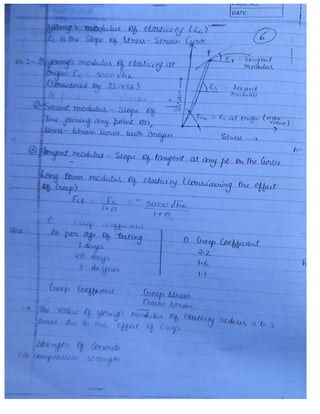 DATE:
6
Young's modulus of elasticity (Ec)
Ec is the Slope of Stress-Strain Curve
Young's modulus of elasticity at
origin Ec = 5000√fck
(Considered by IS-456)
Secant modulus - Slope of
line joining any point on
stress-strain curve with origin
P
ET = Tangent
modulus
Es = Secant
modulus
Ec at origin (max
value)
Stress →
Tangent modulus - Slope of tangent at any pt. on the curve
Long term modulus of elasticity (considering the effect
of creep)
Ecθ = Ec / 1+θ = 5000√fck / 1+θ
Creep coefficient
As per age of testing
θ Creep Coefficient
7 days
2.2
28 days
1.6
1 year
1.1
Creep Coefficient = Creep Strain
Elastic Strain
→ The value of young's modulus of elasticity reduces 2 to 3
times due to the effect of creep
Strength of Concrete
Compressive strength